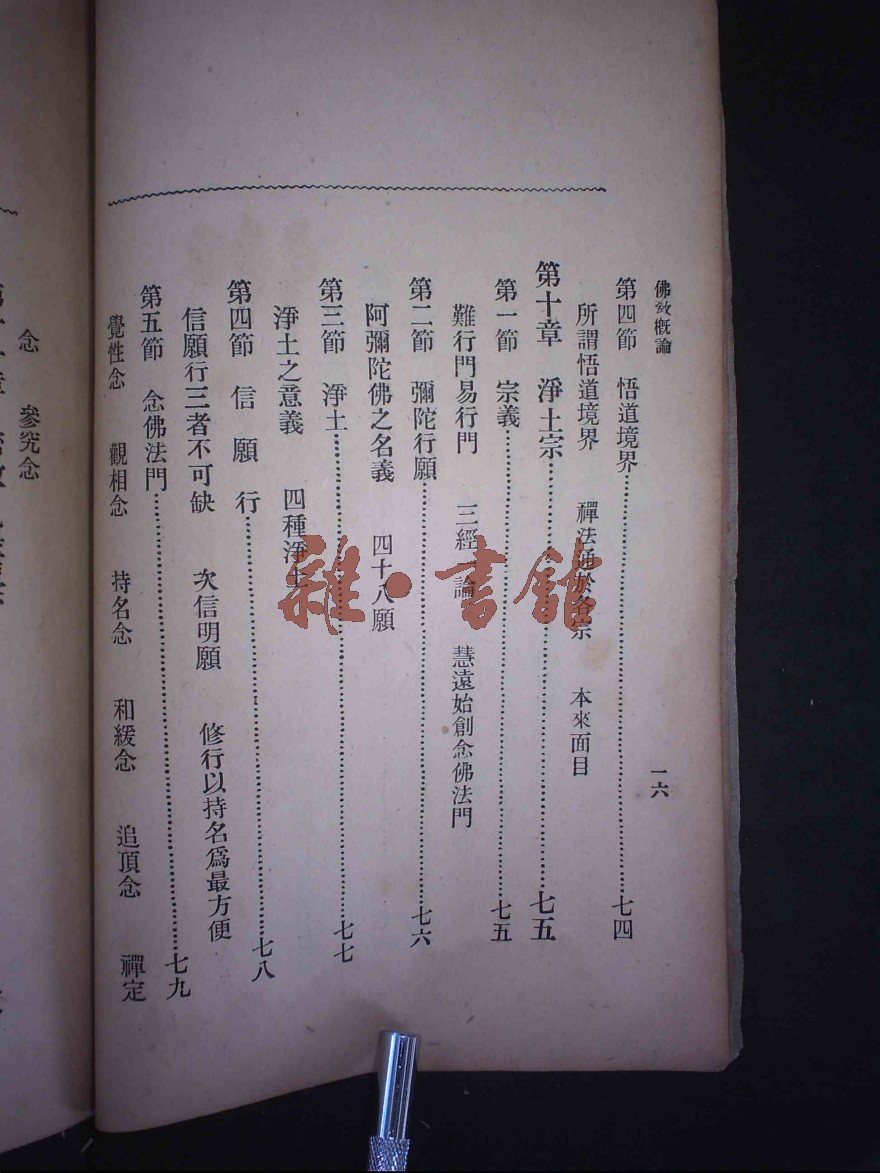 佛敎概論
一六
第四節　悟道境界……七四
所謂悟道境界　禪法通於各宗　本來面目
第十章　淨土宗……七五
第一節　宗義……七五
難行門易行門　三經一論　慧遠始創念佛法門
第二節　彌陀行願……七六
阿彌陀佛之名義　四十八願
第三節　淨土……七七
淨土之意義　四種淨土
第四節　信　願　行……七八
信願行三者不可缺　次信明願　修行以持名爲最方便
第五節　念佛法門……七九
覺性念　觀相念　持名念　和緩念　追頂念　禪定
念　參究念
雜·書館